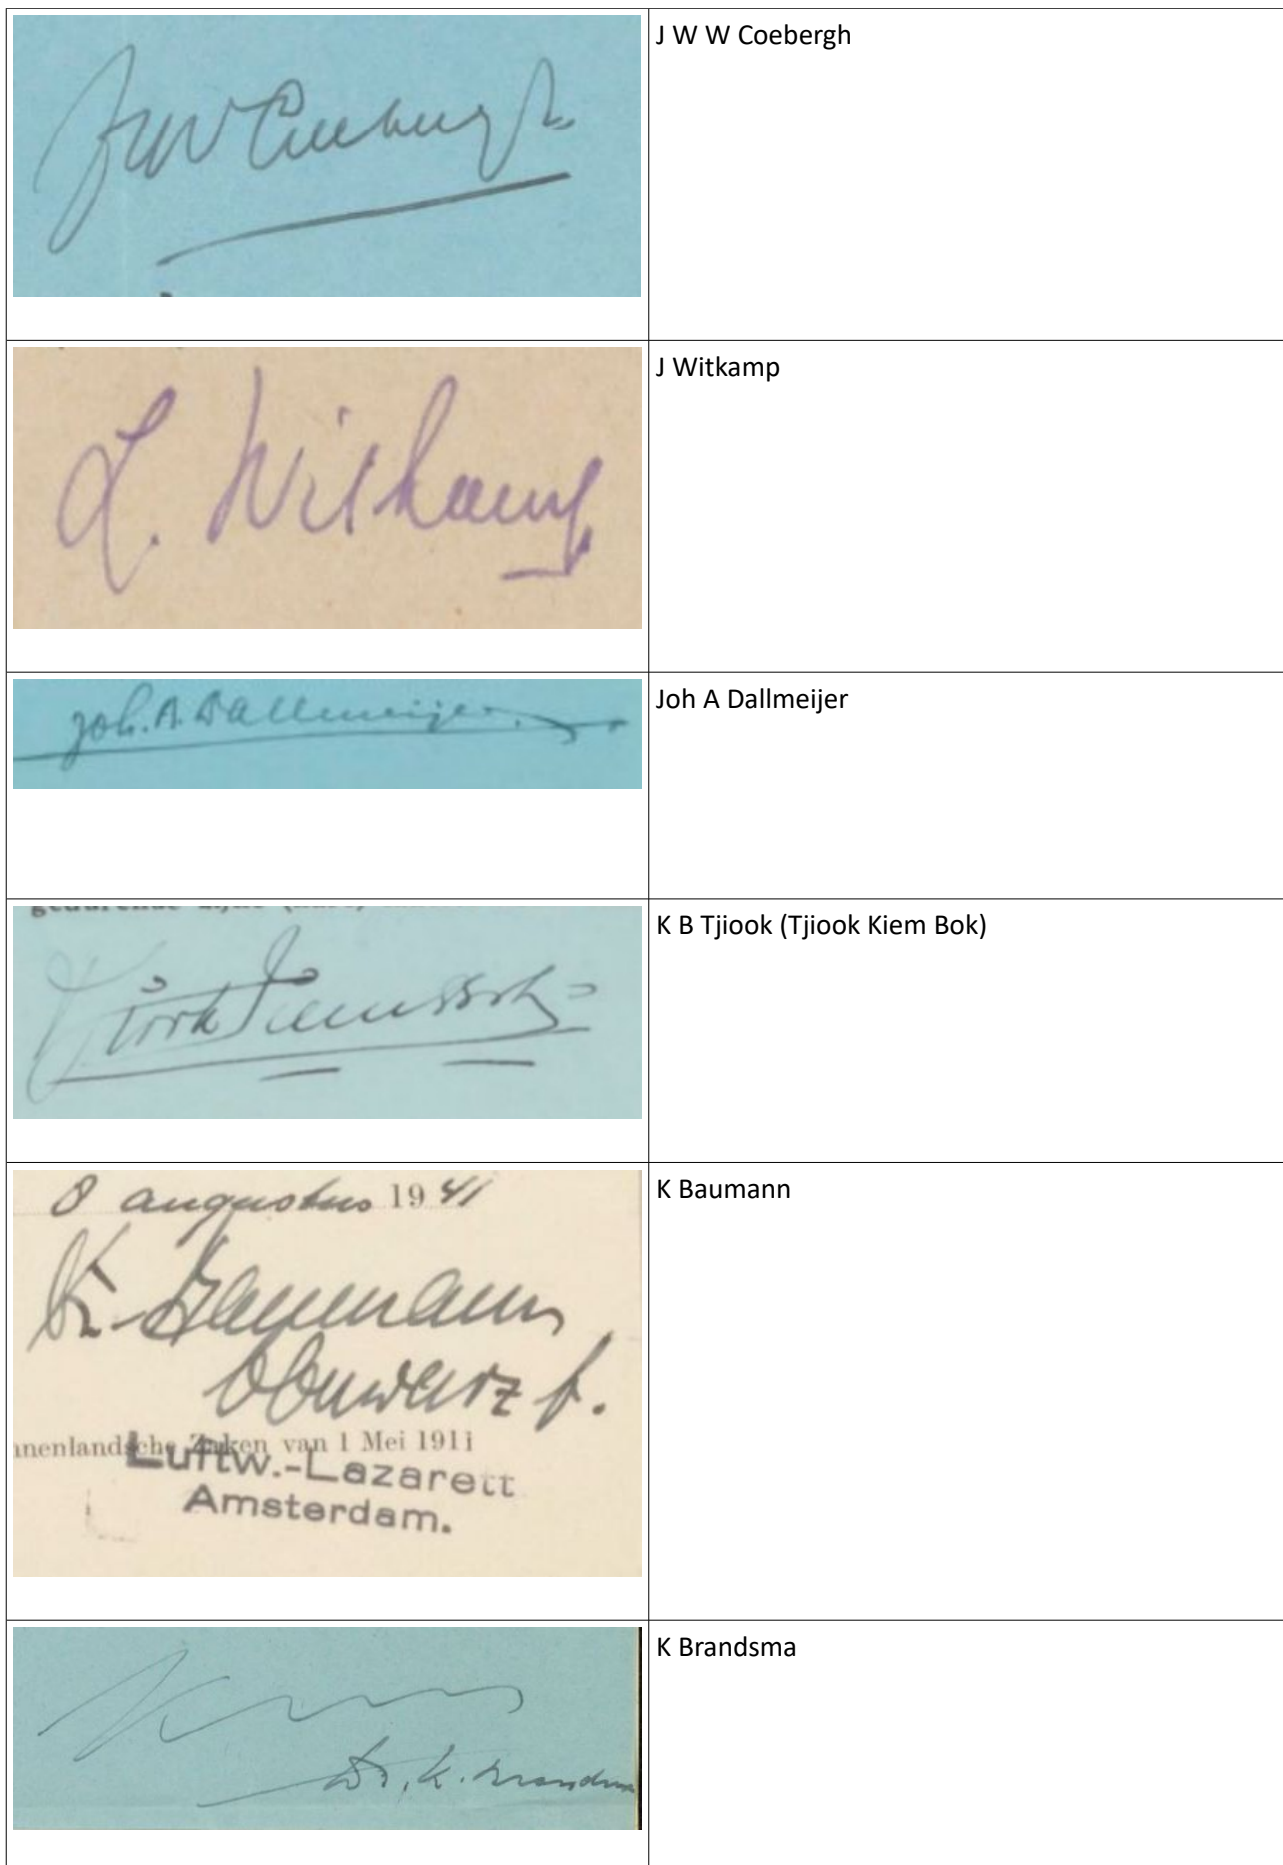 JWW Coebergh
J W W Coebergh
L. Witkamp
J Witkamp
Joh. A. Dallmeijer
Joh A Dallmeijer
Tjiook Kiem Bok
K B Tjiook (Tjiook Kiem Bok)
8 augustus 1941
K. Baumann
K Baumann
nnenlandsche Zaken van 1 Mei 1911
Luftw.-Lazarett
Amsterdam.
Dr. K. Brandsma
K Brandsma